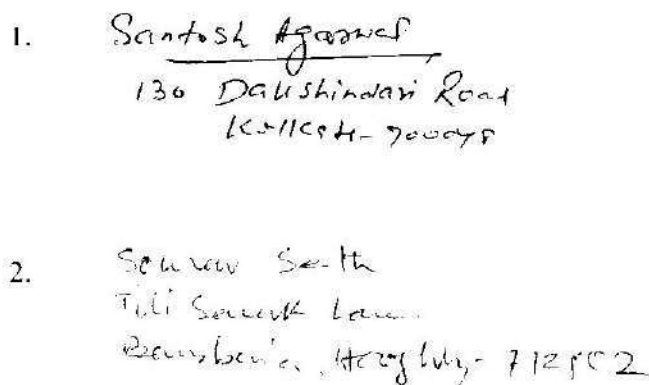 1. Santosh Agarwal
130 Dakshindari Road
Kolkata-700048
2. Sourav Seth
Tili Lane
Bansberia, Hooghly-712502